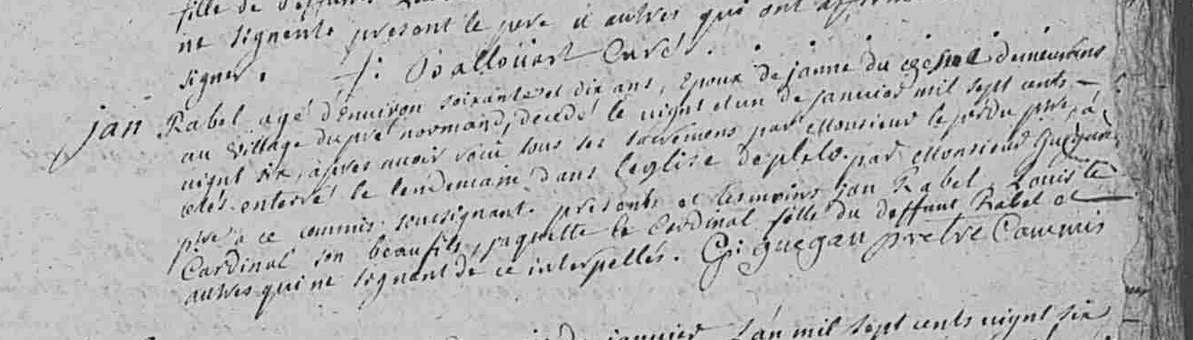 fille de deffunt
ne signente present le pere et autres qui ont
signer. f: Boalloüart Curé.
jan Rabel agé d'environ soixante et dix ans, Epoux de janne du demeurans
au village du pré normand, decedé le vignt et un de janvier mil sept cents
vignt six, apres avoir recu tous ses sacremens par Monsieur le pbre, a
etés enterré le lendemain dans l'eglise de plelo par Monsieur Guegan
pbre a ce commis soussignant. presents et tesmoins jan Rabel, Louis le
Cardinal son beau fils, jaquette le Cardinal fille du deffunt Rabel et
autres qui ne signent de ce interpellés. G: Guegan prêtre Commis
janvier l'an mil sept cents vignt six